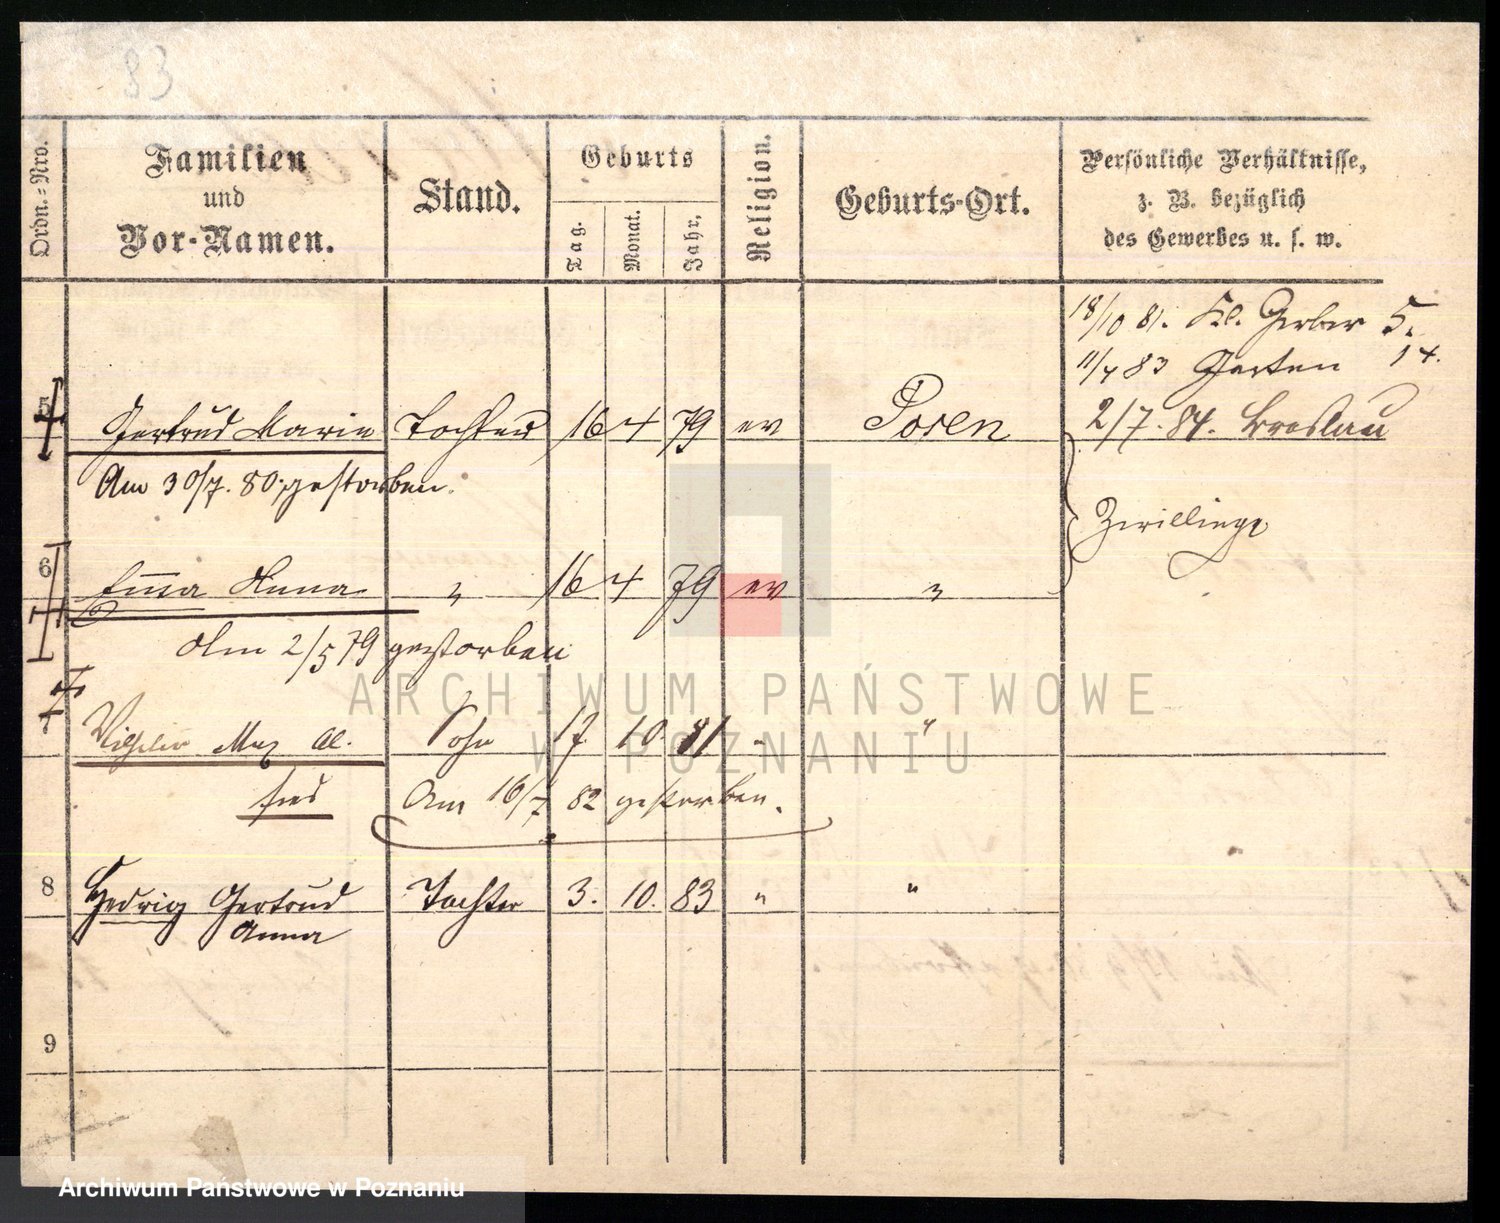 83
Ordn.=Nro.
Familien
und
Vor-Namen.
Stand.
Geburts
Tag.
Monat.
Jahr.
Religion.
Geburts-Ort.
Persönliche Verhältnisse,
z. B. bezüglich
des Gewerbes u. s. w.
18/10 81. Kl. Gerber 5.
11/4 83 Garten 14.
2/7. 84. Breslau
5 Gertrud Marie Tochter 16 4 79 ev Posen
Am 30/7. 80. gestorben.
Zwillinge
6 Emma Anna " 16 4 79 ev "
Am 2/5 79 gestorben
7 Wilhelm Max Al. Sohn 17 10. 81 " "
fred Am 16/7 82 gestorben.
8 Hedwig Gertrud Tochter 3. 10. 83 " "
Anna
9
ARCHIWUM PAŃSTWOWE
W POZNANIU
Archiwum Państwowe w Poznaniu